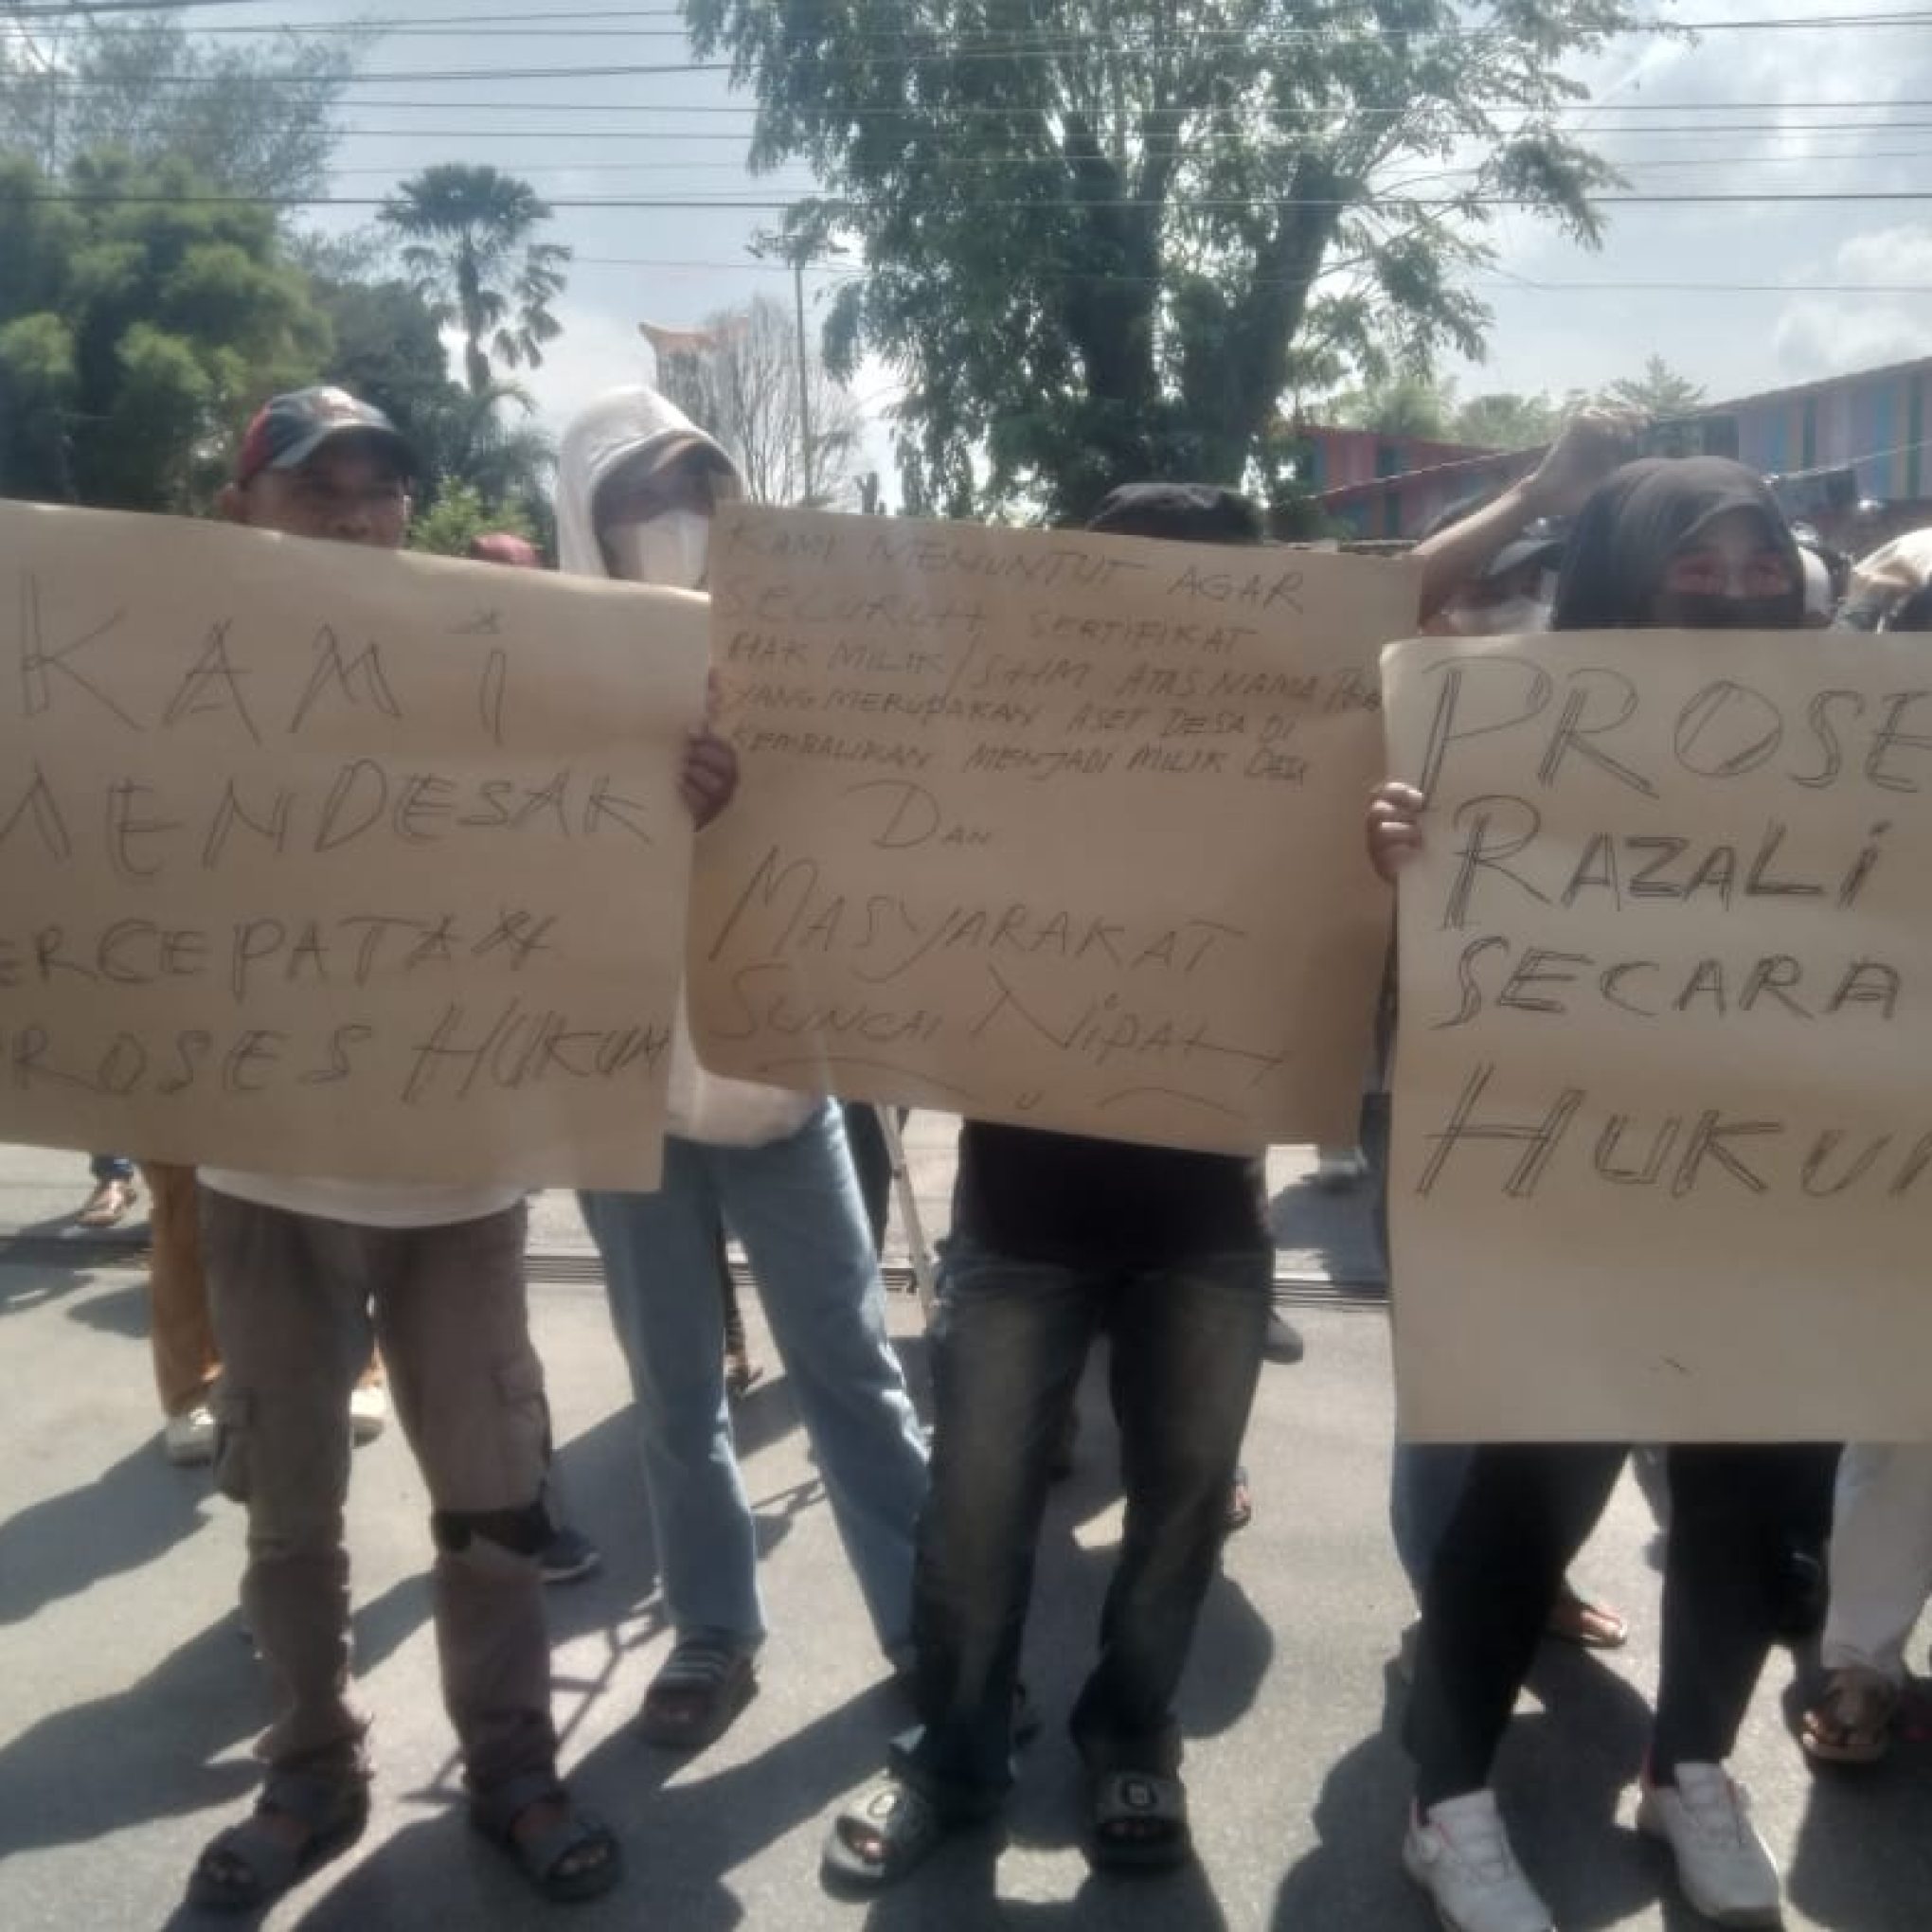 KAMI
MENDESAK
ERCEPATAN
PROSES HUKUM
KAMI MENUNTUT AGAR
SELURUH SERTIFIKAT
HAK MILIK/SHM ATAS NAMA
YANG MERUPAKAN ASET DESA DI
KEMBALIKAN MENJADI MILIK DESA
DAN
MASYARAKAT
SUNGAI NIPAH
PROSE
RAZALI
SECARA
HUKU